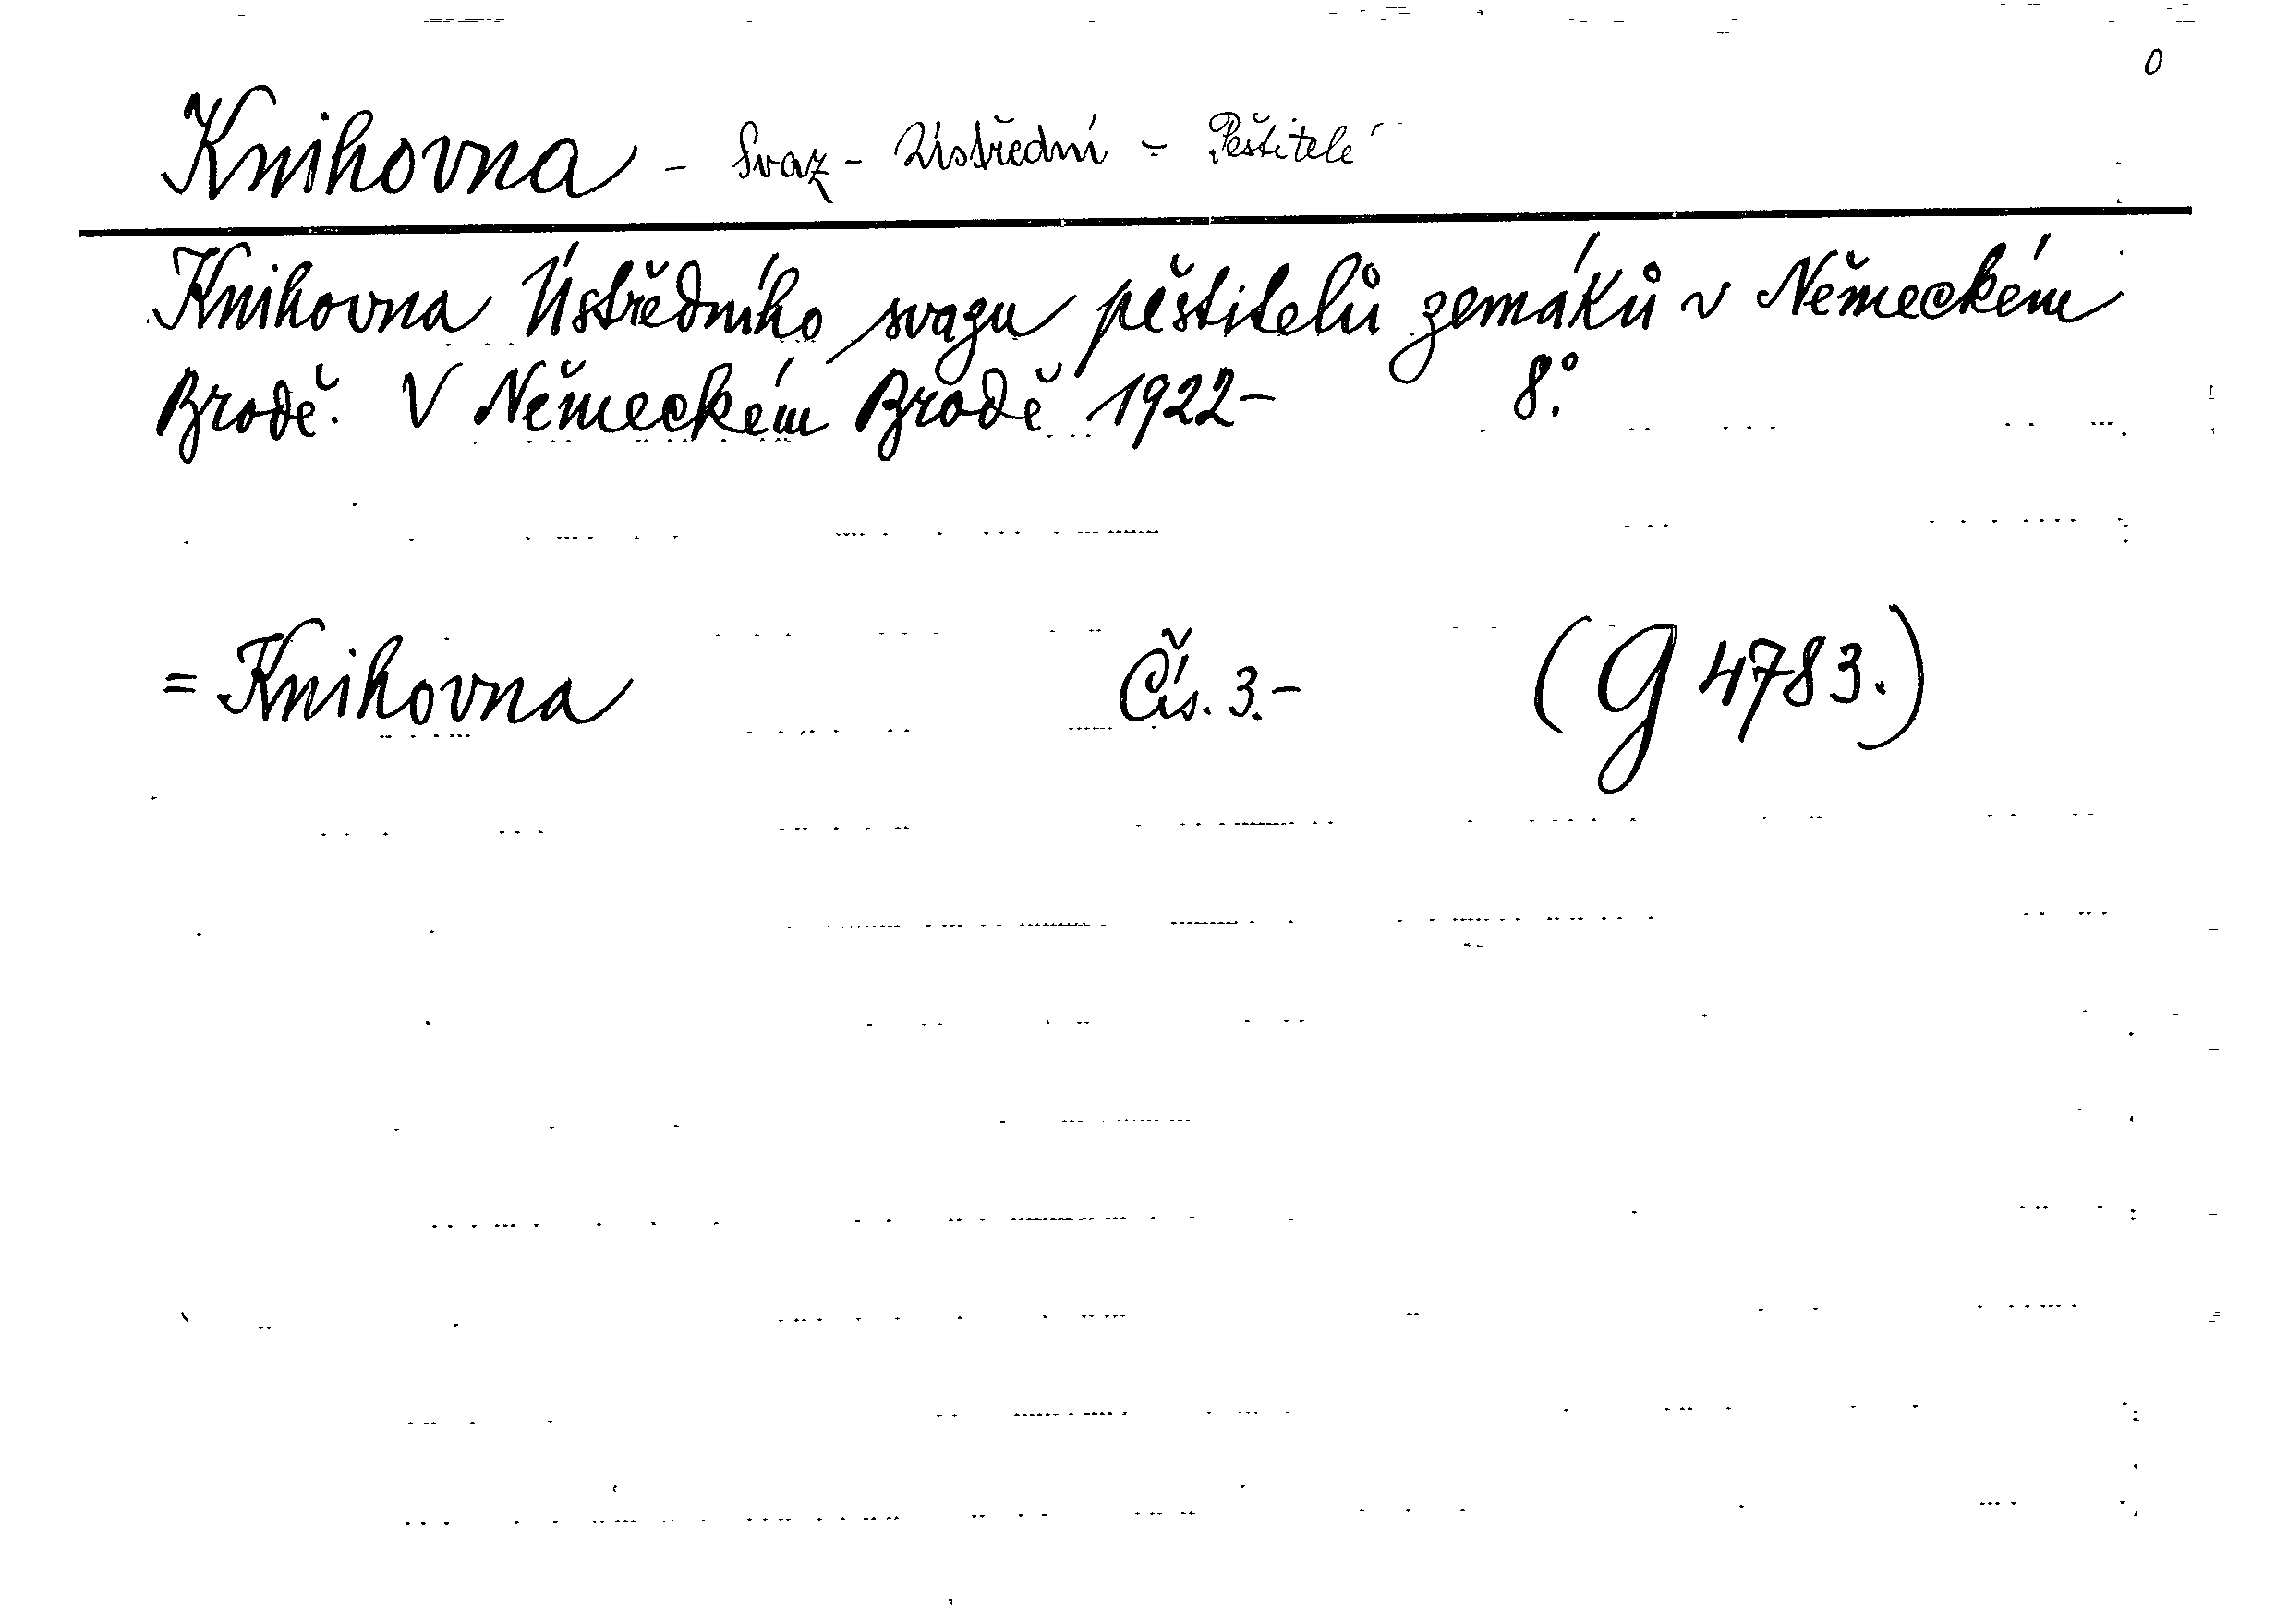 0
Knihovna - Svaz - Ústřední - Pěstitelé
Knihovna Ústředního svazu pěstitelů zemáků v Německém
Brodě. V Německém Brodě 1922- 8.°
= Knihovna Čís. 3.- (G 4783.)